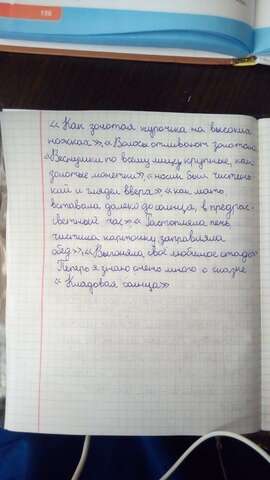 139
« Как золотая курочка на высоких
ножках», « Волосы отливают золотом
«Веснушки по всему лицу крупные, как
золотые монетки», « носик был чистень
кий и глядел вверх» « как мать
вставала далеко до солнца, в предрас-
светный час» « Растопляла печь
чистила картошку заправляла
обед», «Выгоняла своё любимое стадо»
Теперь я знаю очень много о сказке
" Кладовая солнца»